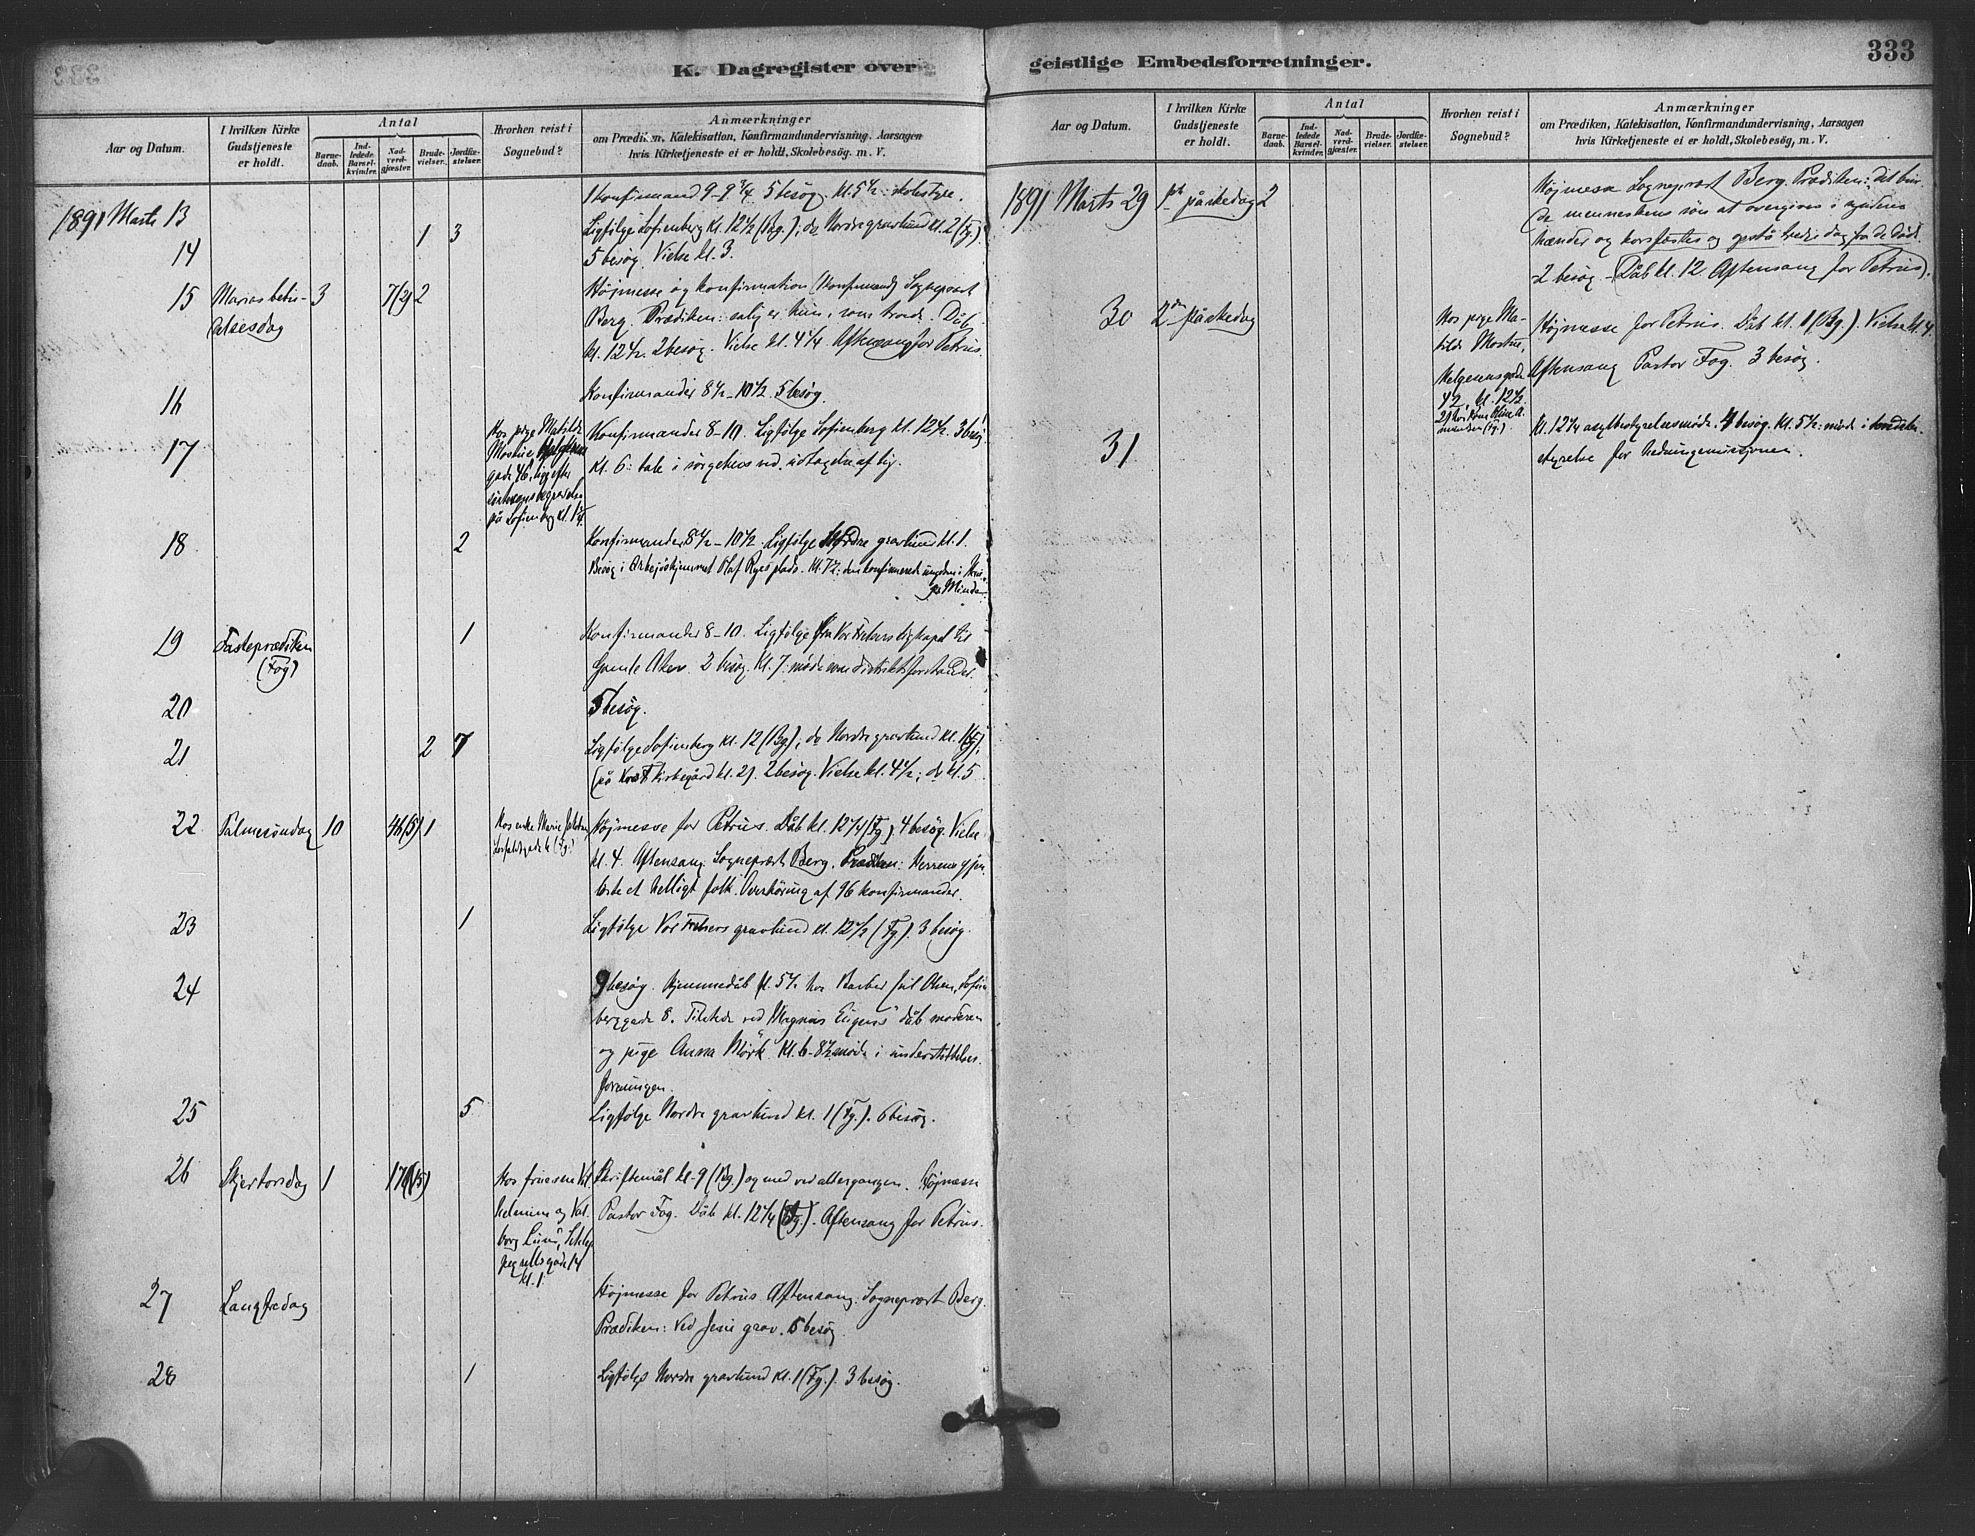 K. Dagregister over
Aar og Datum.
I hvilken Kirke
Gudstjeneste
er holdt.
Antal
Barne-
daab.
Ind-
ledede
Barsel-
kvinder.
Nad-
verd-
gjæster.
Brude-
vielser.
Jordfæ-
stelser.
Hvorhen reist i
Sognebud?
Anmærkninger
om Prædiken, Katekisation, Konfirmandundervisning, Aarsagen
hvis Kirketjeneste ei er holdt, Skolebesøg. m. V.
1891 Marts 13
Konfirmand 9-9 3/4 5 besøg kl. 5 1/2
14 1 3
Ligfølge Sofienberg kl. 12 1/2 (Bg.); do Nordre gravlund kl. 2 (Fg.)
5 besøg. Vielse kl. 3.
15 Marias bebu- 3 7(2) 2
delsesdag
Højmesse og konfirmation Sogneprest
Berg. Prædiken: salig er hun, som trode. Dåb
kl. 12 1/2. 2 besøg. Vielse kl. 4 1/4. Aftensang for Petrus.
16
Konfirmander 8 1/2-10 1/2 5 besøg.
17
Hos pige Matilde
Mostue Helgesens
gade 46,
på Sofienberg kl.
Konfirmander 8-10. Ligfølge Sofienberg kl. 12 1/2. 3 besøg
kl. 6: tale i sørgehus ved udtagelse af lig.
18 2
Konfirmander 8 1/2-10 1/2 Ligfølge Nordre gravlund kl. 1.
Besøg i Arbejdshjemmet Olaf Ryes plads. Kl. 7 1/2: den konfirmerede ungdom i
Minde.
19 Fasteprædiken 1
(Fog)
Konfirmander 8-10. Ligfølge fra Vor Frelsers ligkapel til
Gamle Aker. 2 besøg. Kl. 7: møde distriktsforstander
20
5 besøg.
21 2 7
Ligfølge Sofienberg kl. 12 (Bg.); do Nordre gravlund kl. 1 (Fg.);
(på kirkegård kl. 2). 2 besøg. Vielse kl. 4 1/2; do kl. 5
22 Palmesøndag 10 46(5) 1
Hos enke Marie
(Fg.)
Højmesse for Petrus. Dåb kl. 12 1/4 (Fg.) 4 besøg. Vielse
kl. 4. Aftensang Sogneprest Berg. Prædiken: Herrens gjen-
løste et helligt folk. Overhøring af 96 konfirmander.
23 1
Ligfølge Vor Frelsers gravlund kl. 12 1/2 (Fg.). 3 besøg.
24
9 besøg. Hjemmedåb kl. 5 1/2 hos Barber Olsen, Sofien-
berggade 8. Tilstede ved Magnus Eugens dåb moderen
og pige Anna Mörk. Kl. 6-8 1/2 møde i understøttelses-
foreningen.
25 5
Ligfølge Nordre gravlund kl. 1 (Fg.). 6 besøg.
26 Skjertorsdag 1 176(15)
Hos frøknene Vil-
helmine og Val-
borg Lund, Schlep-
pegrellsgade 14
kl. 1.
Skriftemål kl. 9 (Bg.) og med ved altergangen. Højmesse
Pastor Fog. Dåb kl. 12 1/4 (Bg.). Aftensang for Petrus.
27 Langfredag
Højmesse for Petrus. Aftensang. Sogneprest Berg.
Prædiken: Ved Jesu grav. 5 besøg.
28 1
Ligfølge Nordre gravlund kl. 1 (Fg.). 3 besøg.
geistlige Embedsforretninger.
333
Aar og Datum.
I hvilken Kirke
Gudstjeneste
er holdt.
Antal
Barne-
daab.
Ind-
ledede
Barsel-
kvinder.
Nad-
verd-
gjæster.
Brude-
vielser.
Jordfæ-
stelser.
Hvorhen reist i
Sognebud?
Anmærkninger
om Prædiken, Katekisation, Konfirmandundervisning, Aarsagen
hvis Kirketjeneste ei er holdt, Skolebesøg, m. V.
1891 Marts 29 1ste påskedag 2
Højmesse Sogneprest Berg. Prædiken: Det bur-
de menneskens søn at overgives i synderes
hænder og korsfæstes og opstå tredie dag fra de døde.
2 besøg. (Dåb kl. 12 Aftensang for Petrus).
30 2den påskedag
Hos pige Ma-
tilde Mostue,
Helgesensgade
42, kl. 12 1/2.
(Fg.)
Højmesse for Petrus. Dåb kl. 1 (Bg.). Vielse kl. 4.
Aftensang Pastor Fog. 3 besøg.
31
Kl. 12 1/4 asylbestyrelsesmøde. 4 besøg. Kl. 5 1/2 møde i kredsbe-
styrelse for hedningemissionen.